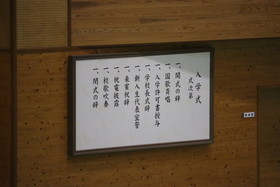 入学式
式次第
一、開式の辞
一、国歌斉唱
一、入学許可書授与
一、学校長式辞
一、新入生代表宣誓
一、来賓祝辞
一、祝電披露
一、校歌吹奏
一、閉式の辞